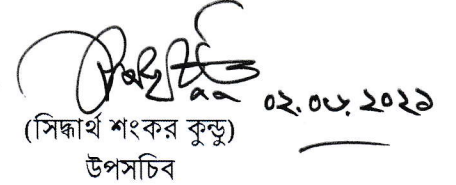 ০২.০৮.২০২১
(সিদ্ধার্থ শংকর কুন্ডু)
উপসচিব